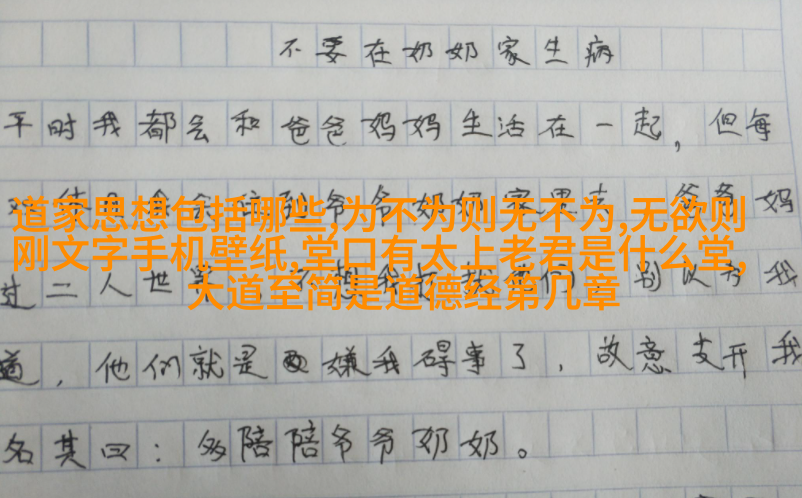 不要在奶奶家生病
平时我都会和爸爸妈妈生活在一起，但每
道家思想包括哪些,为不为则无不为,无欲则
刚文字手机壁纸,堂口有太上老君是什么堂,
大道至简是道德经第几章
过二人世界 别以为我
道，他们就是嫌我碍事了，故意支开我
名其曰：多陪陪爷爷奶奶。